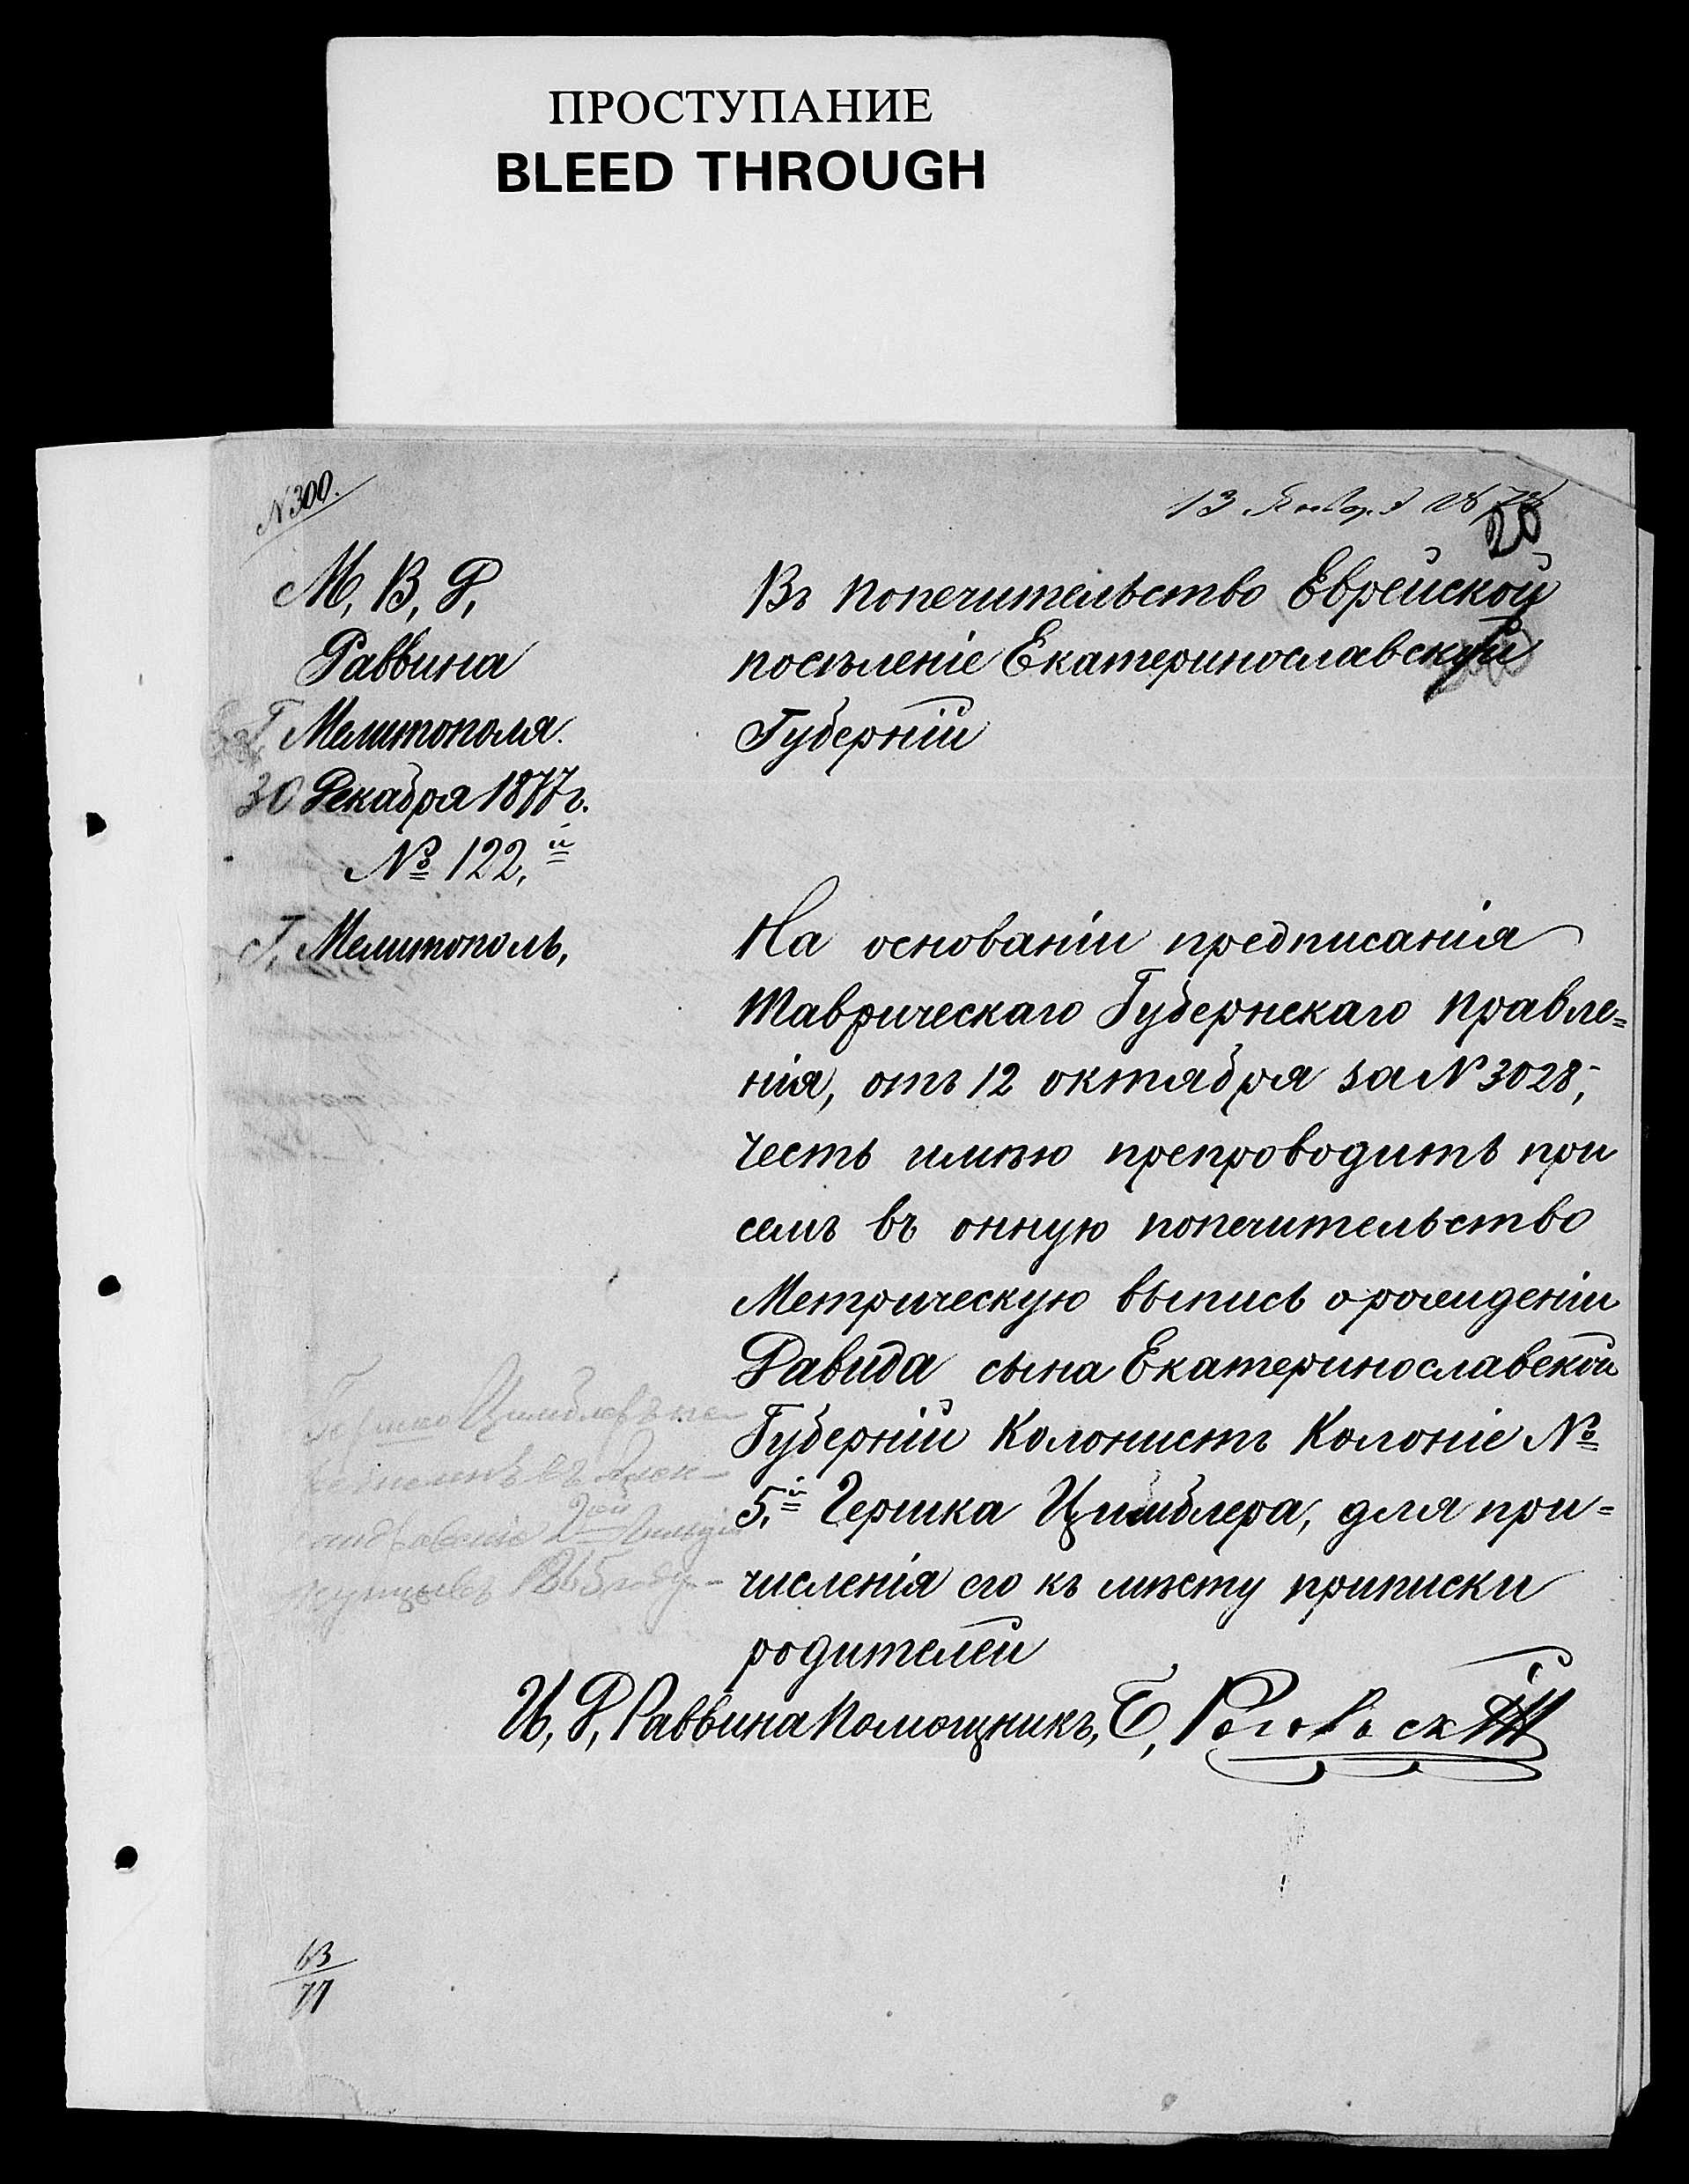 ПРОСТУПАНИЕ
BLEED THROUGH
N 300.
13 Января 1878
20
М, В, Д,
Раввина
Г, Мелитополя.
30 Декабря 1877 г.
№ 122,й
Г, Мелитополь,
Въ попечительство Еврейской
посѣленіе Екатеринославский
Губерніи
На основаніи предписанія
Таврическаго Губернскаго правле=
нія, отъ 12 октября за N 3028,
честь имѣю препроводить при
семъ въ онную попечительство
Метрическую выпись о рождении
Давида сына Екатеринославской
Губерніи Колонистъ Колоніе №
5,й Гершка Цимблера, для при=
численія его къ мѣсту приписки
родителей
И, Д, Раввина помощникъ, Б, Роговскій
Гершко Цимблеръ пе-
въ Алек-
2ой гильдіи
купцовъ 1865 году-
63
77